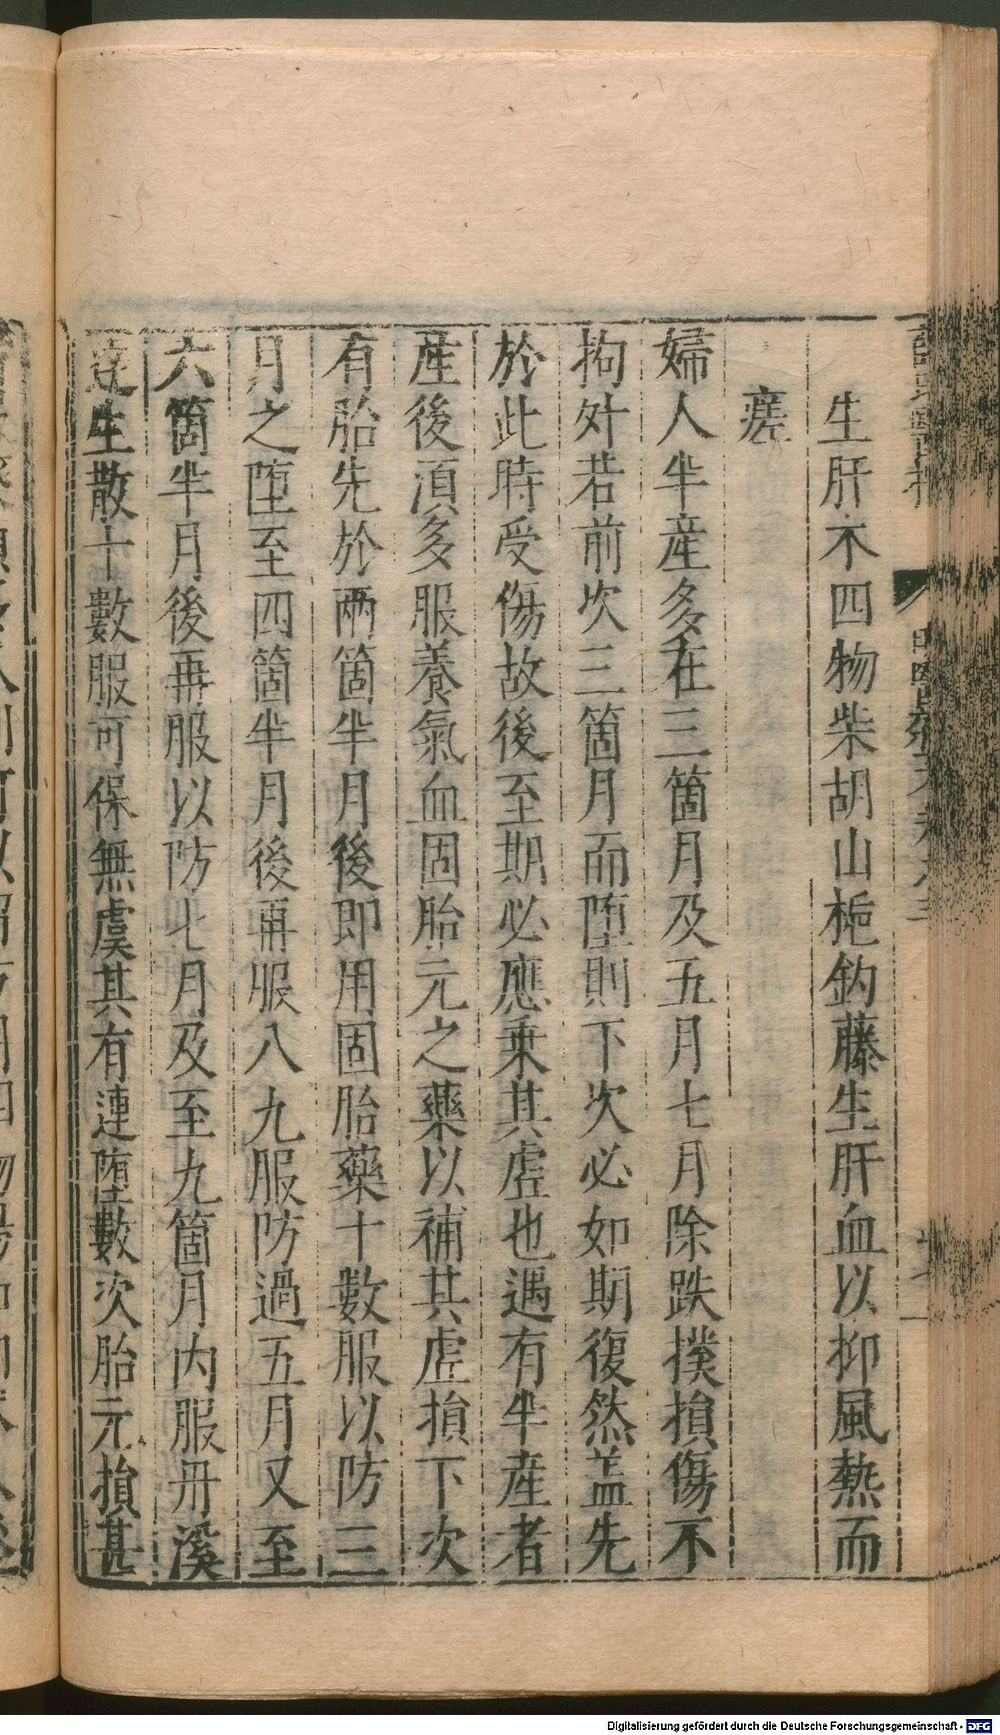 生肝木四物柴胡山梔鈎藤生肝血以抑風熱而
瘥
婦人半産多在三箇月及五月七月除跌撲損傷不
拘外若前次三箇月而墮則下次必如期復然盖先
於此時受傷故後至期必應乗其虗也遇有半産者
産後湏多服養氣血固胎元之藥以補其虗損下次
有胎先於兩箇半月後即用固胎藥十數服以防三
月之堕至四箇半月後再服八九服防過五月又至
六箇半月後再服以防七月及至九箇月内服丹溪
逹生散十數服可保無虞其有連堕數次胎元損甚
Digitalisierung gefördert durch die Deutsche Forschungsgemeinschaft - DFG